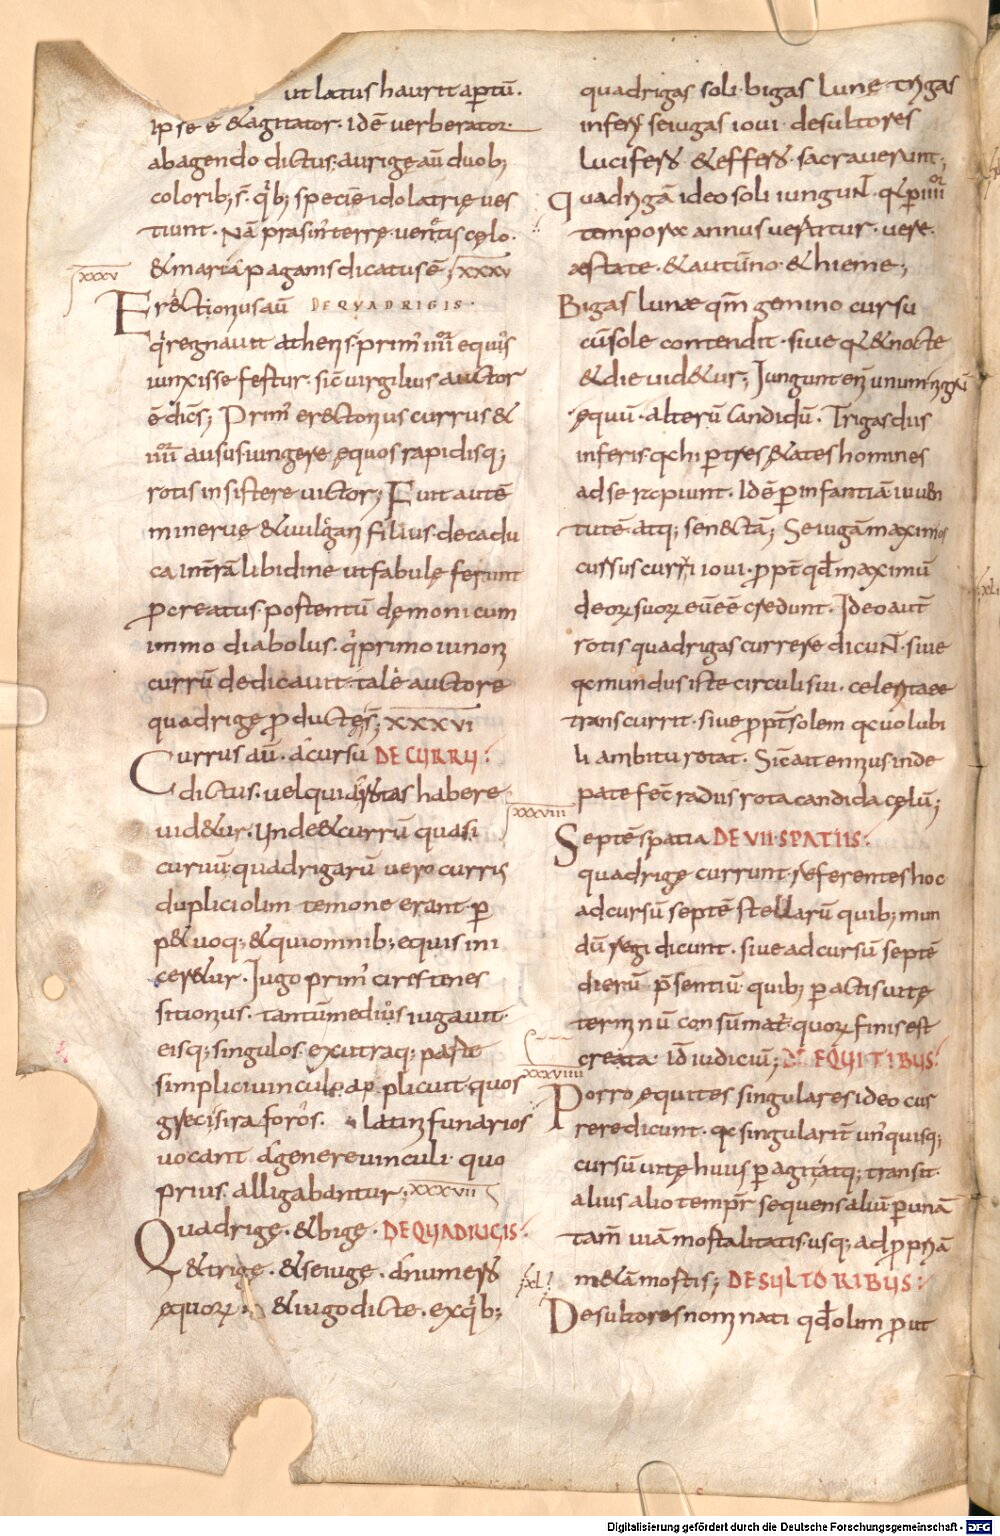 ut latus haurit aptū.
ipse ē &agitator. idē uerberator
ab agendo dictus. aurigę aū duob;
colorib; s̄. q̇b; speciē idolatrię ues
tiunt. Nā prasin' terrę. uen&is cęlo.
& mari a paganis dicatus ē; xxxv
xxxv
Er&ctonius aū DE QVADRIGIS.
q̇ regnauit athenis prim' iiii equis
iunxisse fertur. sic uirgilius auctor
ē dicēs; Prim' er&cthonius currus &
iiii ausus iungere equos rapidisq;
rotis insistere uictor; Fuit autē
mineruę & uulcani filius. de cadu
ca intrā libidine ut fabulę ferunt
procreatus. portentū dęmonicum
immo diabolus. q̇ primo iunoni
currū dedicauit. tale auctore
quadrigę productę s̄; xxxvi
Currus aū. a cursu DE CURRU:
dictus. uel qui a rotas habere
uid&ur. Unde & currū quasi
curuū. quadrigarū uero curris
duplici olim temone erant. per
p&uoq; & qui omnib; equis ini
cer&ur. Jugo prim' cirestenes
sitionius. tantū medios iugauit
eisq; singulos ex utraq; parte
simplici uinculo applicuit. quos
gręci siraforos. latini funarios
uocant a genere uinculi. quo
prius alligabantur; xxxvii
Quadrigę. & bigę. DE QUADRIGIS:
& trigę. & seiugę. a numero
equorū & iugo dictę. ex q̇b;
quadrigas soli. bigas lunę. trigas
inferis seiugas ioui. desultores
lucifero &effero. sacrauerunt;
Quadrigā ideo soli iungunt. q̄ per iiii
tempora annus uertitur. uere.
aestate. & autūno. & hieme;
Bigas lunae qm̄ gemino cursu
cū sole contendit. siue q̄ & nocte
& die uid&ur; Jungunt enī unum nigrū
equū. alterū candidū. Trigas diis
inferis q̄ hi per tres &ates homines
ad se rapiunt. Idē per infantiā iuuen
tutē. atq; senectā; Seiugā maximos
cursus curri ioui. propt̄ qd̄ maximū
deorū suorū eū eē credunt. Ideo aut̄
rotis quadrigas currere dicunt. siue
q̄ mundus iste circuli sui celeritate
transcurrit. siue propt̄ solem q̄ uolubi
li ambitu rotat. Sic ait ennius inde
pate fec̄ radiis rota candida cęlū;
xxxviii
Septē spatia DE VII SPATIIS:
quadrigę currunt. referentes hoc
ad cursū septē stellarū quib; mun
dū regi dicunt. siue ad cursū septē
dierū p̄sentiū. quib; peractis uitę
terminū consūmat. quorū finis est
creata. id iudiciū; DE EQUITIBUS:
xxxviiii
Porro equites singulares ideo cur
rere dicunt. q̄ singularit̄ un' quisq;
cursū uitę huius peragit atq; transit.
alius alio tempr̄ sequens aliū per unā
tam̄ uiā mortalitatis usq; ad propriā
m&ā mortis; DESULTORIBUS:
xl
Desultores nominati qd̄ olim prout
Digitalisierung gefördert durch die Deutsche Forschungsgemeinschaft - DFG